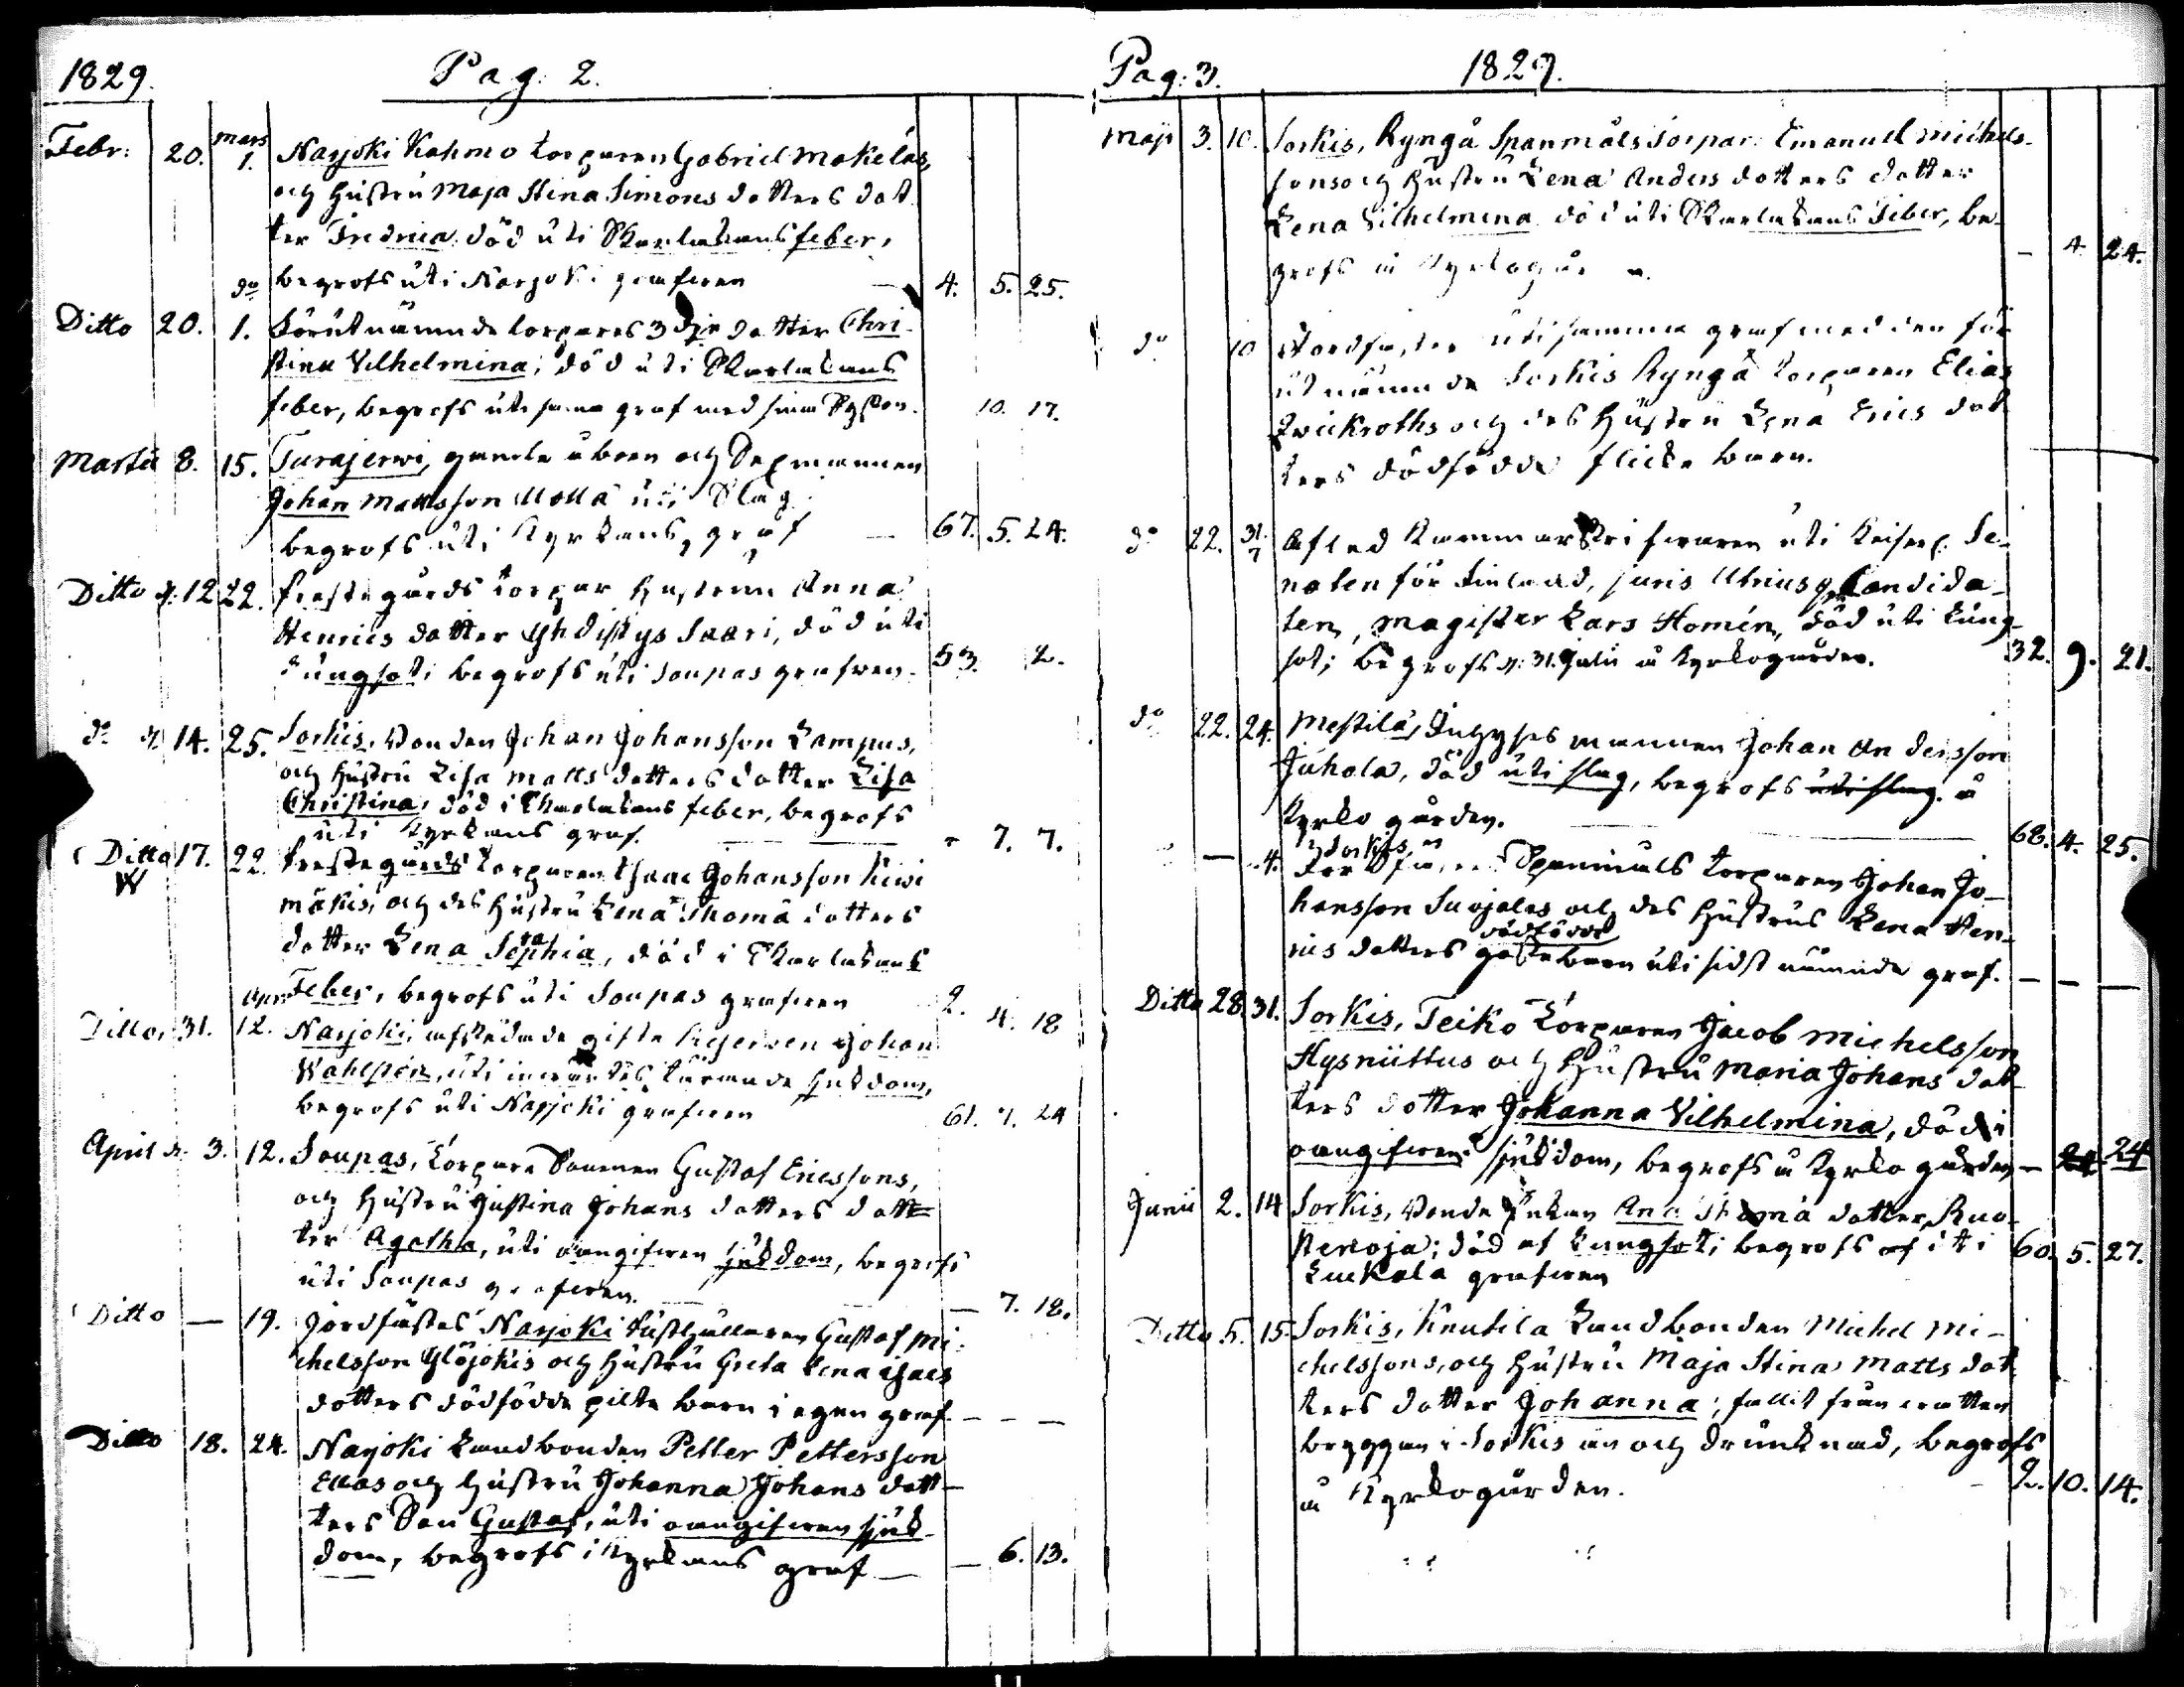 1829. Pag. 2.
Febr: 20. Mars 1. Narjoki Kahmo torparen Gabriel Mäkeläs,
och Hustru Maja Stina Simons dotters dot
ter Fredrica, död uti Skarlakansfeber,
do begrofs uti Narjoki grafven — 4. 5. 25.
Ditto 20. 1. Förutnämnde torpares 3dje dotter Chri-
stina Vilhelmina; död uti Skarlakans
feber, begrofs uti samma graf med sina Syskon. 10. 17.
Martii 8. 15. Turajerwi, gamle åboen och Sexmannen
Johan Mattsson Mollä uti Slag
begrofs uti Kyrkans graf — 67. 5. 24.
Ditto d: 12 22. Prestegårds torpar hustrun Anna
Henrics dotter Yhdistys Saari, död uti
Lungsot; begrofs uti Soupas grafven. 53. 2.
do d: 14. 25. Sorkis, Bonden Johan Johansson Lampus,
och Hustru Lisa Matts dotters dotter Lisa
Christina, död i Skarlakans feber, begrofs
uti Kyrkans graf. — 7. 7.
Ditto 17. 22. Prestegårds torparen Isaac Johansson Kiwi
mäkis, och des Hustru Lena Thomä dotters
dotter Lena Sophia, död i Skarlakans
Feber, begrofs uti Soupas grafven 2. 4. 18
Ditto, 31. April 12. Narjoki, afskedade gifte Ryttaren Johan
Wahlsten, uti invärtes tärande sjukdom,
begrofs uti Narjoki grafven 61. 7. 24
April d. 3. 12. Soupas, Torpare Sonmen Gustaf Ericssons,
och Hustru Justina Johans dotters dott=
ter Agatha, uti oangifven sjukdom, begrofs
uti Soupas grafven. — 7. 18.
Ditto — 19. Jordfästes Narjoki Gustaf Mi-
chelsson Ylöjokis och Hustru Greta Lena Isacs
dotters dödfödde pilte barn i egen graf. — — —
Ditto 18. 24. Narjoki Landbonden Petter Pettersson
Ellas och Hustru Johanna Johans dott-
ters Son Gustaf, uti oangifven sjuk-
dom, begrofs i Kyrkans graf — — 6. 13.
Pag: 3. 1829.
Maji 3. 10. Sorkis, Ryngä Spanmåls Torpar. Emanuel Michels-
sons och Hustru Lena Anders dotters dotter
Lena Vilhelmina död uti Skarlakans Feber, be-
grofs å Kyrkogår — 4. 24.
do 10 Jordfästes uti samma graf med den för
utnämnde Sorkis Ryngä torparen Elias
Zwickroths och des Hustru Lena Erics dot
ters dödfödde flicke barn.
do 22. 31/7 Afled. Kammarskrifvaren uti Keiserl. Se-
naten för Finland, juris Utriusq. Candida-
ten, Magister Lars Homén, död uti Lung-
sot; begrofs d: 31. Julii å Kyrkogården. 32. 9. 21.
do 22. 24. Mestilä, Inhyses mannen Johan Andersson
Juhola, död uti slag, begrofs uti slag. å
Kyrko gården. — 68. 4. 25.
— 4. Sorkis Spanmåls torparen Johan Jo-
hansson Suojalas och des Hustrus Lena Hen-
rics dotters dödfödde gossebarn uti sidst nämnde graf. — — —
Ditto 28. 31. Sorkis, Teiko Torparen Jacob Michelsson
Hysniittus och Hustru Maria Johans dot
ters dotter Johanna Vilhelmina, död i
oangifven sjukdom, begrofs å Kyrko gården — 24 24
Junii 2. 14 Sorkis, Bonde Enkan Ana Thomä dotter Ruo-
stenoja; död af Lungsot; begrofs af uti 60. 5. 27.
Luckala grafven
Ditto 5. 15. Sorkis, Knutila Landbonden Michel Mi-
chelssons, och Hustru Maja Stina Matts dot
ters dotter Johanna; fallit från
bryggan i Sorkis ån och drunknad, begrofs
å Kyrkogården. — 2. 10. 14.